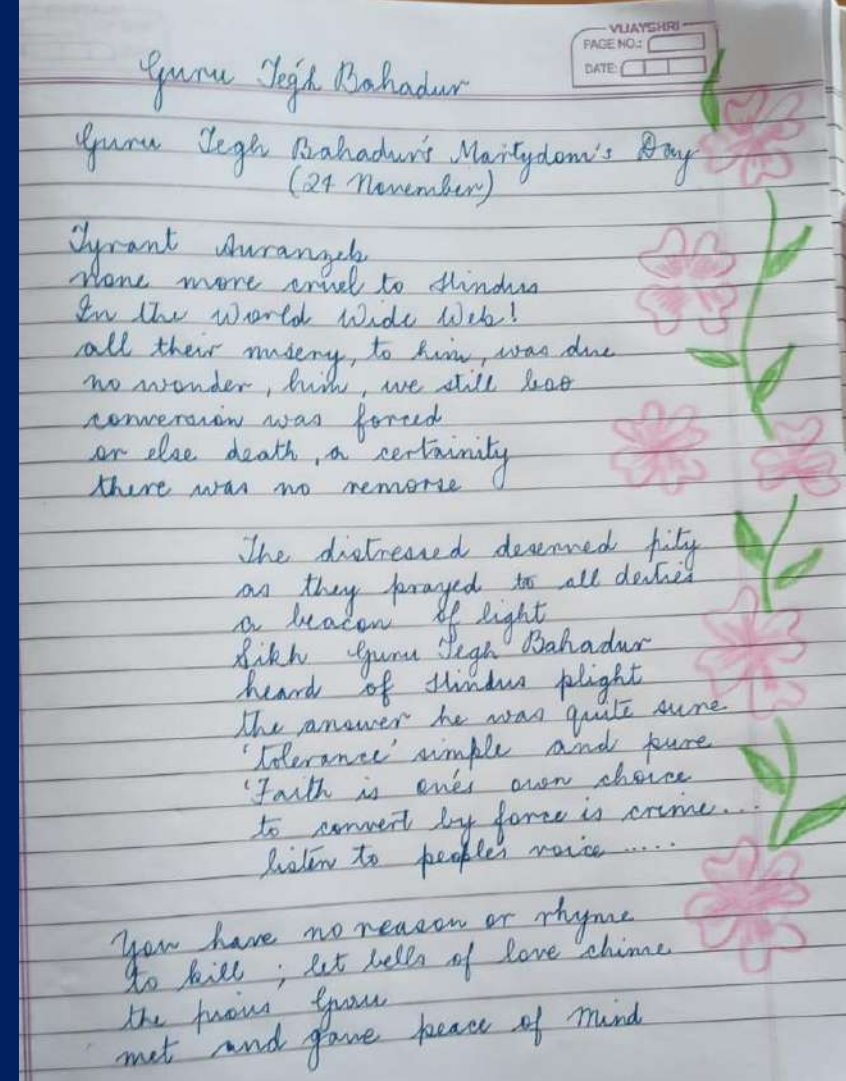 VIJAYSHRI
PAGE NO.:
DATE:
Guru Tegh Bahadur
Guru Tegh Bahadur's Martydom's Day
(24 November)
Tyrant Auranzeb
None more cruel to Hindus
In the World Wide Web!
all their misery, to him, was due
no wonder, him, we still boo
conversion was forced
or else death, a certainity
there was no remorse
The distressed deserved pity
as they prayed to all deities
a beacon of light
Sikh Guru Tegh Bahadur
heard of Hindus plight
the answer he was quite sure
'tolerance' simple and pure
'Faith is one's own choice
to convert by force is crime...
listen to people's voice .....
You have no reason or rhyme
to kill ; let bells of love chime
the pious Guru
met and gave peace of Mind